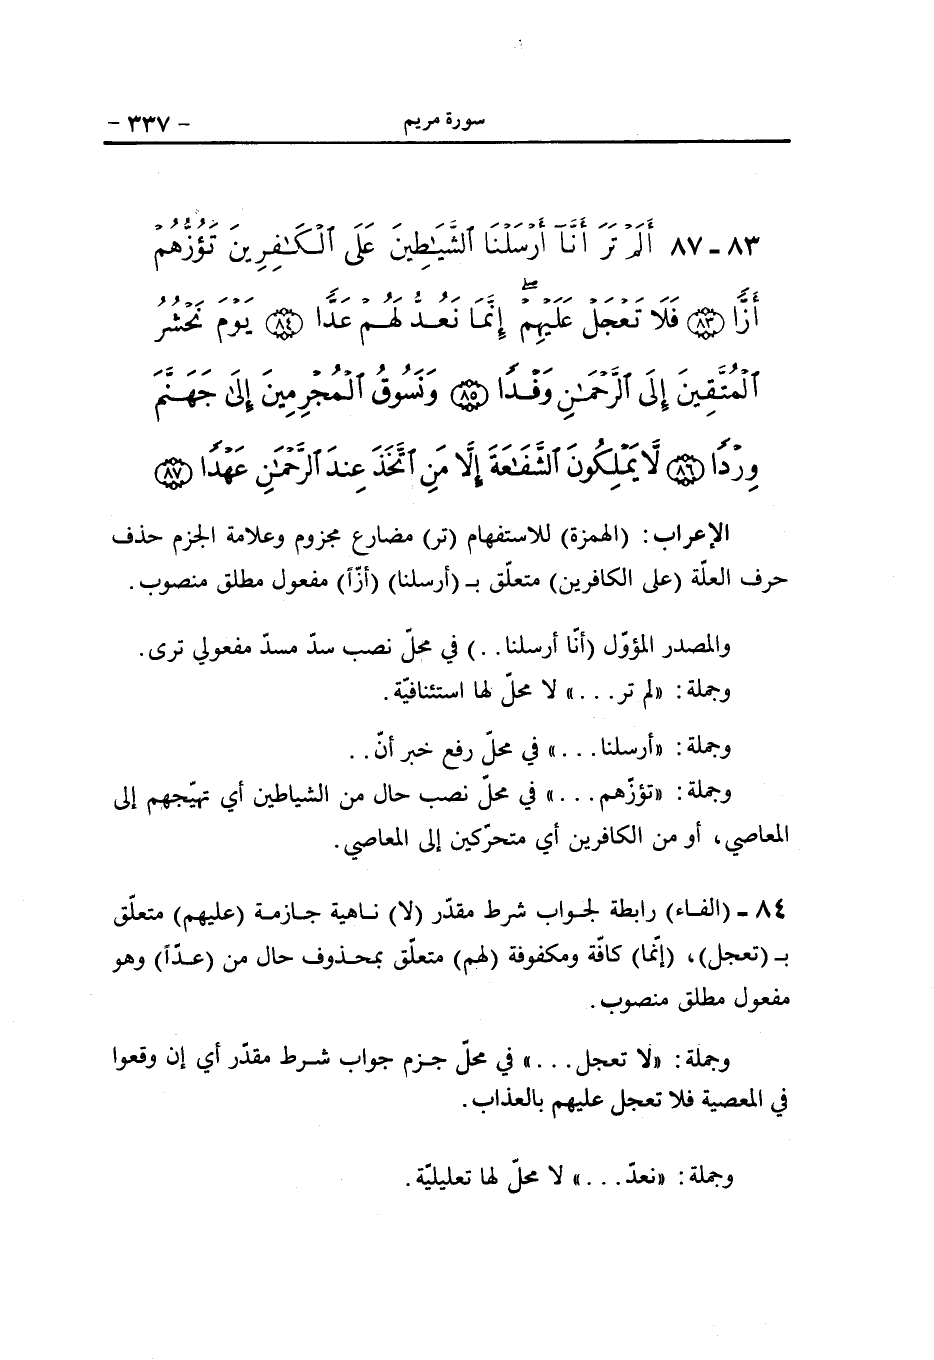 سورة مريم - ٣٣٧ -
٨٣ - ٨٧ أَلَمْ تَرَ أَنَّآ أَرْسَلْنَا ٱلشَّيَـٰطِينَ عَلَى ٱلْكَـٰفِرِينَ تَؤُزُّهُمْ
أَزًّا ﴿٨٣﴾ فَلَا تَعْجَلْ عَلَيْهِمْ ۖ إِنَّمَا نَعُدُّ لَهُمْ عَدًّا ﴿٨٤﴾ يَوْمَ نَحْشُرُ
ٱلْمُتَّقِينَ إِلَى ٱلرَّحْمَـٰنِ وَفْدًا ﴿٨٥﴾ وَنَسُوقُ ٱلْمُجْرِمِينَ إِلَىٰ جَهَنَّمَ
وِرْدًا ﴿٨٦﴾ لَّا يَمْلِكُونَ ٱلشَّفَـٰعَةَ إِلَّا مَنِ ٱتَّخَذَ عِندَ ٱلرَّحْمَـٰنِ عَهْدًا ﴿٨٧﴾
الإعراب: (الهمزة) للاستفهام (تر) مضارع مجزوم وعلامة الجزم حذف
حرف العلّة (على الكافرين) متعلّق بـ (أرسلنا) (أزّاً) مفعول مطلق منصوب.
والمصدر المؤوّل (أنّا أرسلنا..) في محلّ نصب سدّ مسدّ مفعولي ترى.
وجملة: «لم تر...» لا محلّ لها استئنافيّة.
وجملة: «أرسلنا...» في محلّ رفع خبر أنّ..
وجملة: «تؤزّهم...» في محلّ نصب حال من الشياطين أي تهيّجهم إلى
المعاصي، أو من الكافرين أي متحرّكين إلى المعاصي.
٨٤ - (الفاء) رابطة لجواب شرط مقدّر (لا) ناهية جازمة (عليهم) متعلّق
بـ (تعجل)، (إنّما) كافّة ومكفوفة (لهم) متعلّق بمحذوف حال من (عدّاً) وهو
مفعول مطلق منصوب.
وجملة: «لا تعجل...» في محلّ جزم جواب شرط مقدّر أي إن وقعوا
في المعصية فلا تعجل عليهم بالعذاب.
وجملة: «نعدّ...» لا محلّ لها تعليليّة.